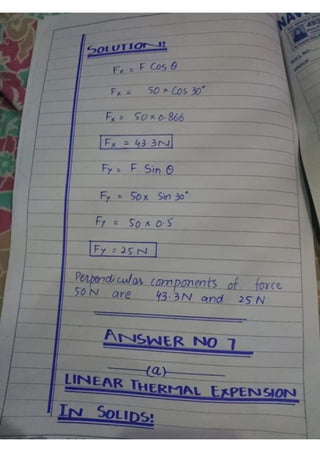 SOLUTION!
Fx = F Cos θ
Fx = 50 × Cos 30°
Fx = 50 × 0.866
Fx = 43.3N
Fy = F Sin θ
Fy = 50 x Sin 30°
Fy = 50 x 0.5
Fy = 25 N
Perpendicular components of force
50 N are 43.3N and 25 N
ANSWER NO 7
(a)
LINEAR THERMAL EXPENSION
IN SOLIDS!